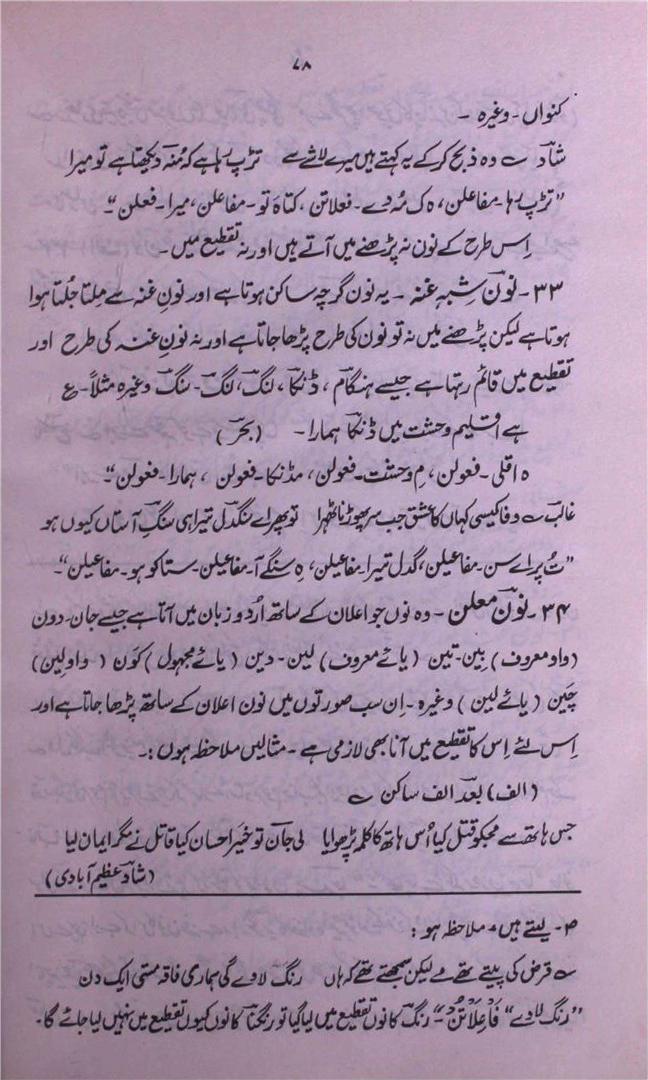 ۷۸
کنواں۔ وغیرہ ۔
شاد ؎ وہ ذبح کر کے یہ کہتے ہیں میرے لاشے سے تڑپ رہا ہے کہ مُنہ دیکھتا ہے تو میرا
”تڑپ رہا۔ مفاعلن، ہ ک مُہ دے۔ فعلاتن ، کتاہ تو۔ مفاعلن، میرا۔ فعلن“۔
اِس طرح کے نون نہ پڑھنے میں آتے ہیں اور نہ تقطیع میں۔
۳۳۔ نون شبہ غنہ ۔ یہ نون گرچہ ساکن ہوتا ہے اور نونِ غنہ سے ملتا جُلتا ہوا
ہوتا ہے لیکن پڑھنے میں نہ تو نون کی طرح پڑھا جاتا ہے اور نہ نونِ غنہ کی طرح اور
تقطیع میں قائم رہتا ہے جیسے ہنگام ، ڈنکا ، لنگ، لنگ۔ سنگ وغیرہ مثلاً۔ ع
ہے اقلیم وحشت میں ڈنکا ہمارا۔ (بحر)
ہ اقلی۔ فعولن، مِ وحشت۔ فعولن، مڈنکا۔ فعولن ، ہمارا۔ فعولن“۔
غالب ؎ وفا کیسی کہاں کا عشق جب سر پھوڑنا ٹھہرا تو پھر اے سنگدل تیرا ہی سنگِ آستاں کیوں ہو
”تُ پر اے سن۔ مفاعیلن، گدل تیرا۔ مفاعیلن، ہِ سنگے آ۔ مفاعیلن۔ ستا کو ہو۔ مفاعیلن“۔
۳۴۔ نون معلن ۔ وہ نوں جو اعلان کے ساتھ اُردو زبان میں آتا ہے جیسے جان۔ دون
(واو معروف) بِین۔ تین (یائے معروف) لین۔ دین (یائے مجہول) کَون ( واو لین)
چَین (یائے لین ) وغیرہ ۔ اِن سب صورتوں میں نون اعلان کے ساتھ پڑھا جاتا ہے اور
اِس لئے اِس کا تقطیع میں آنا بھی لازمی ہے ۔ مثالیں ملاحظہ ہوں:۔
(الف) بعد الف ساکن ؎
جس ہاتھ سے مجکو قتل کیا اُس ہاتھ کا کلمہ پڑھوایا لی جان تو خیر احسان کیا قاتل نے مگر ایمان لیا
(شاد عظیم آبادی)
۴۔ لیتے ہیں، ملاحظہ ہو :
؎ قرض کی پیتے تھے مے لیکن سمجھتے تھے کہ ہاں رنگ لاوے گی ہماری فاقہ مستی ایک دن
”رنگ لاوے“ فَاعِلَاتُن“۔ رنگ کا نوں تقطیع میں لیا گیا تو رنگنا کا نوں کیوں تقطیع میں نہیں لیا جائے گا۔